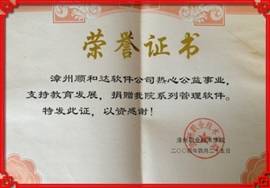 荣誉证书
漳州顺和达软件公司热心公益事业，
支持教育发展，捐赠我院系列管理软件。
特发此证，以资感谢！
漳州职业技术学院
二〇〇四年四月二十五日